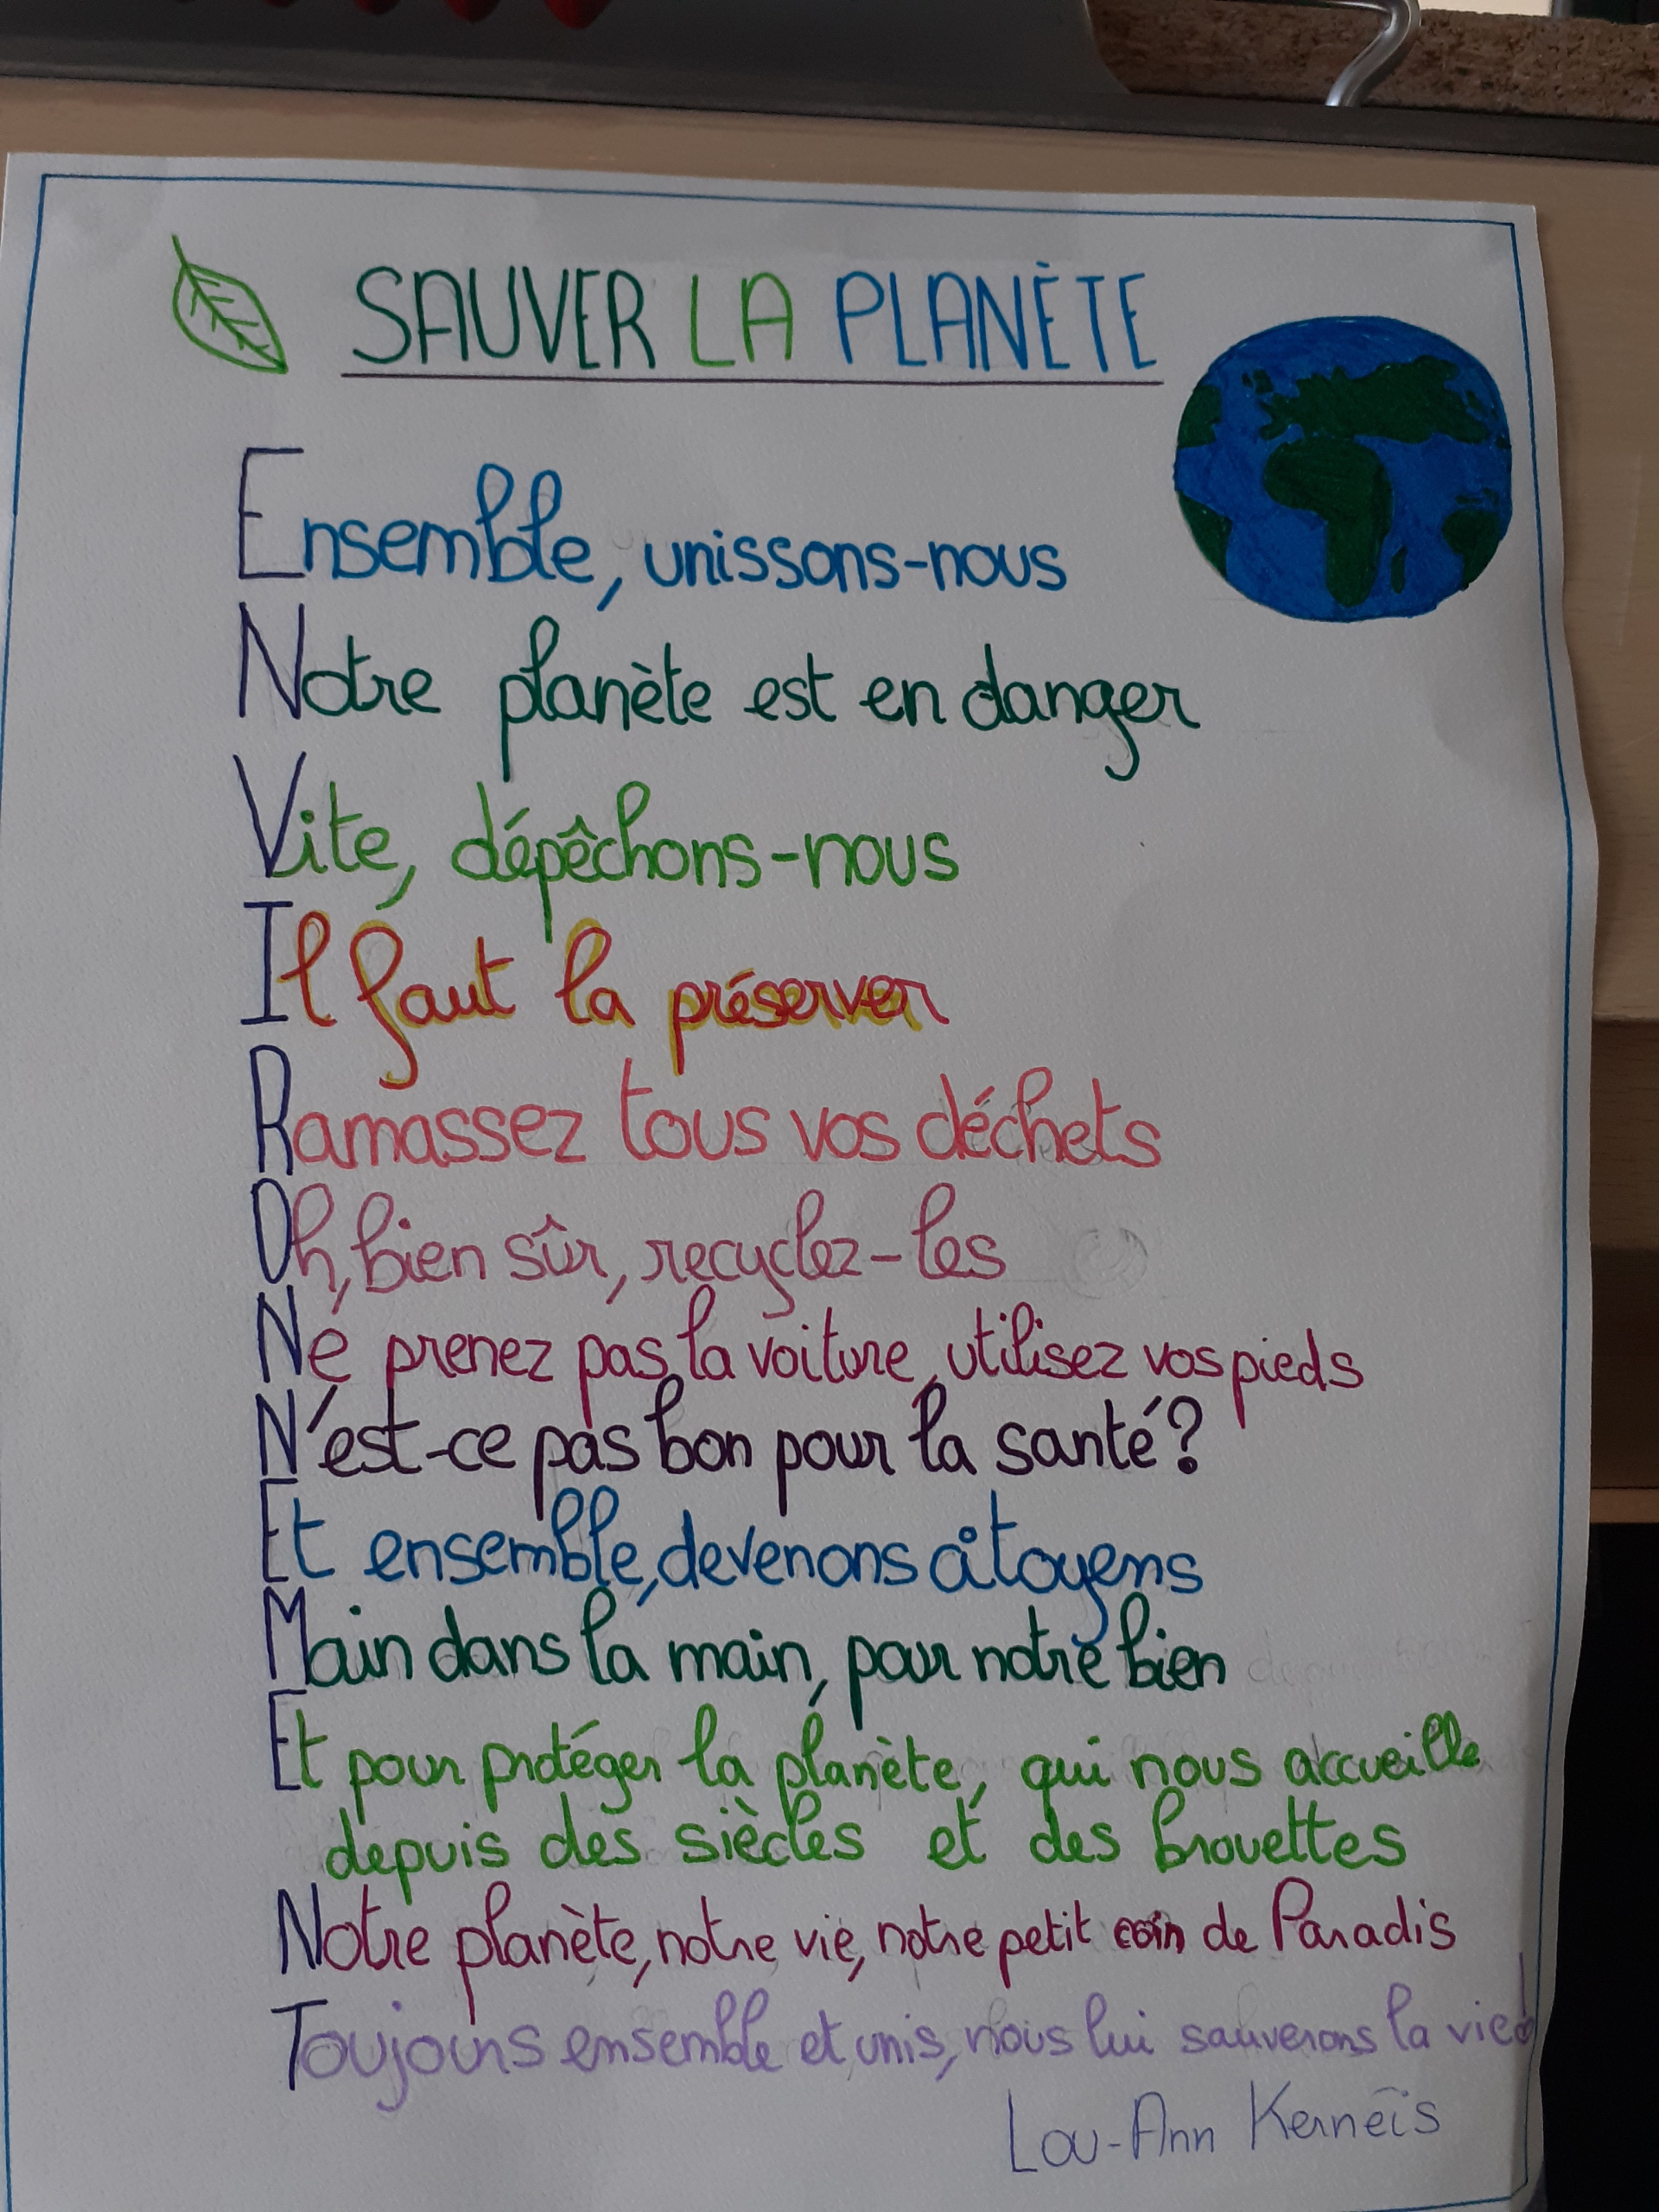 SAUVER LA PLANÈTE
Ensemble, unissons-nous
Notre planète est en danger
Vite, dépêchons-nous
Il faut la préserver
Ramassez tous vos déchets
Oh, bien sûr, recyclez-les
Ne prenez pas la voiture, utilisez vos pieds
N'est-ce pas bon pour la santé?
Et ensemble, devenons citoyens
Main dans la main, pour notre bien
Et pour protéger la planète, qui nous accueille
depuis des siècles et des brouettes
Notre planète, notre vie, notre petit coin de Paradis
Toujours ensemble et unis, nous lui sauverons la vie!
Lou-Ann Kernéïs